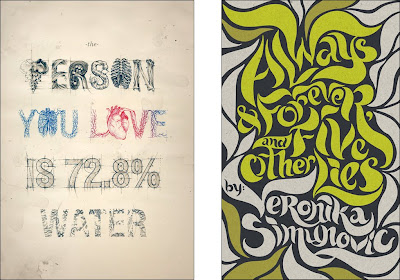 the
PERSON
YOU LOVE
IS 72.8%
WATER
Always
& Forever,
and Five
Other Lies
by:
Veronika
Simunovic